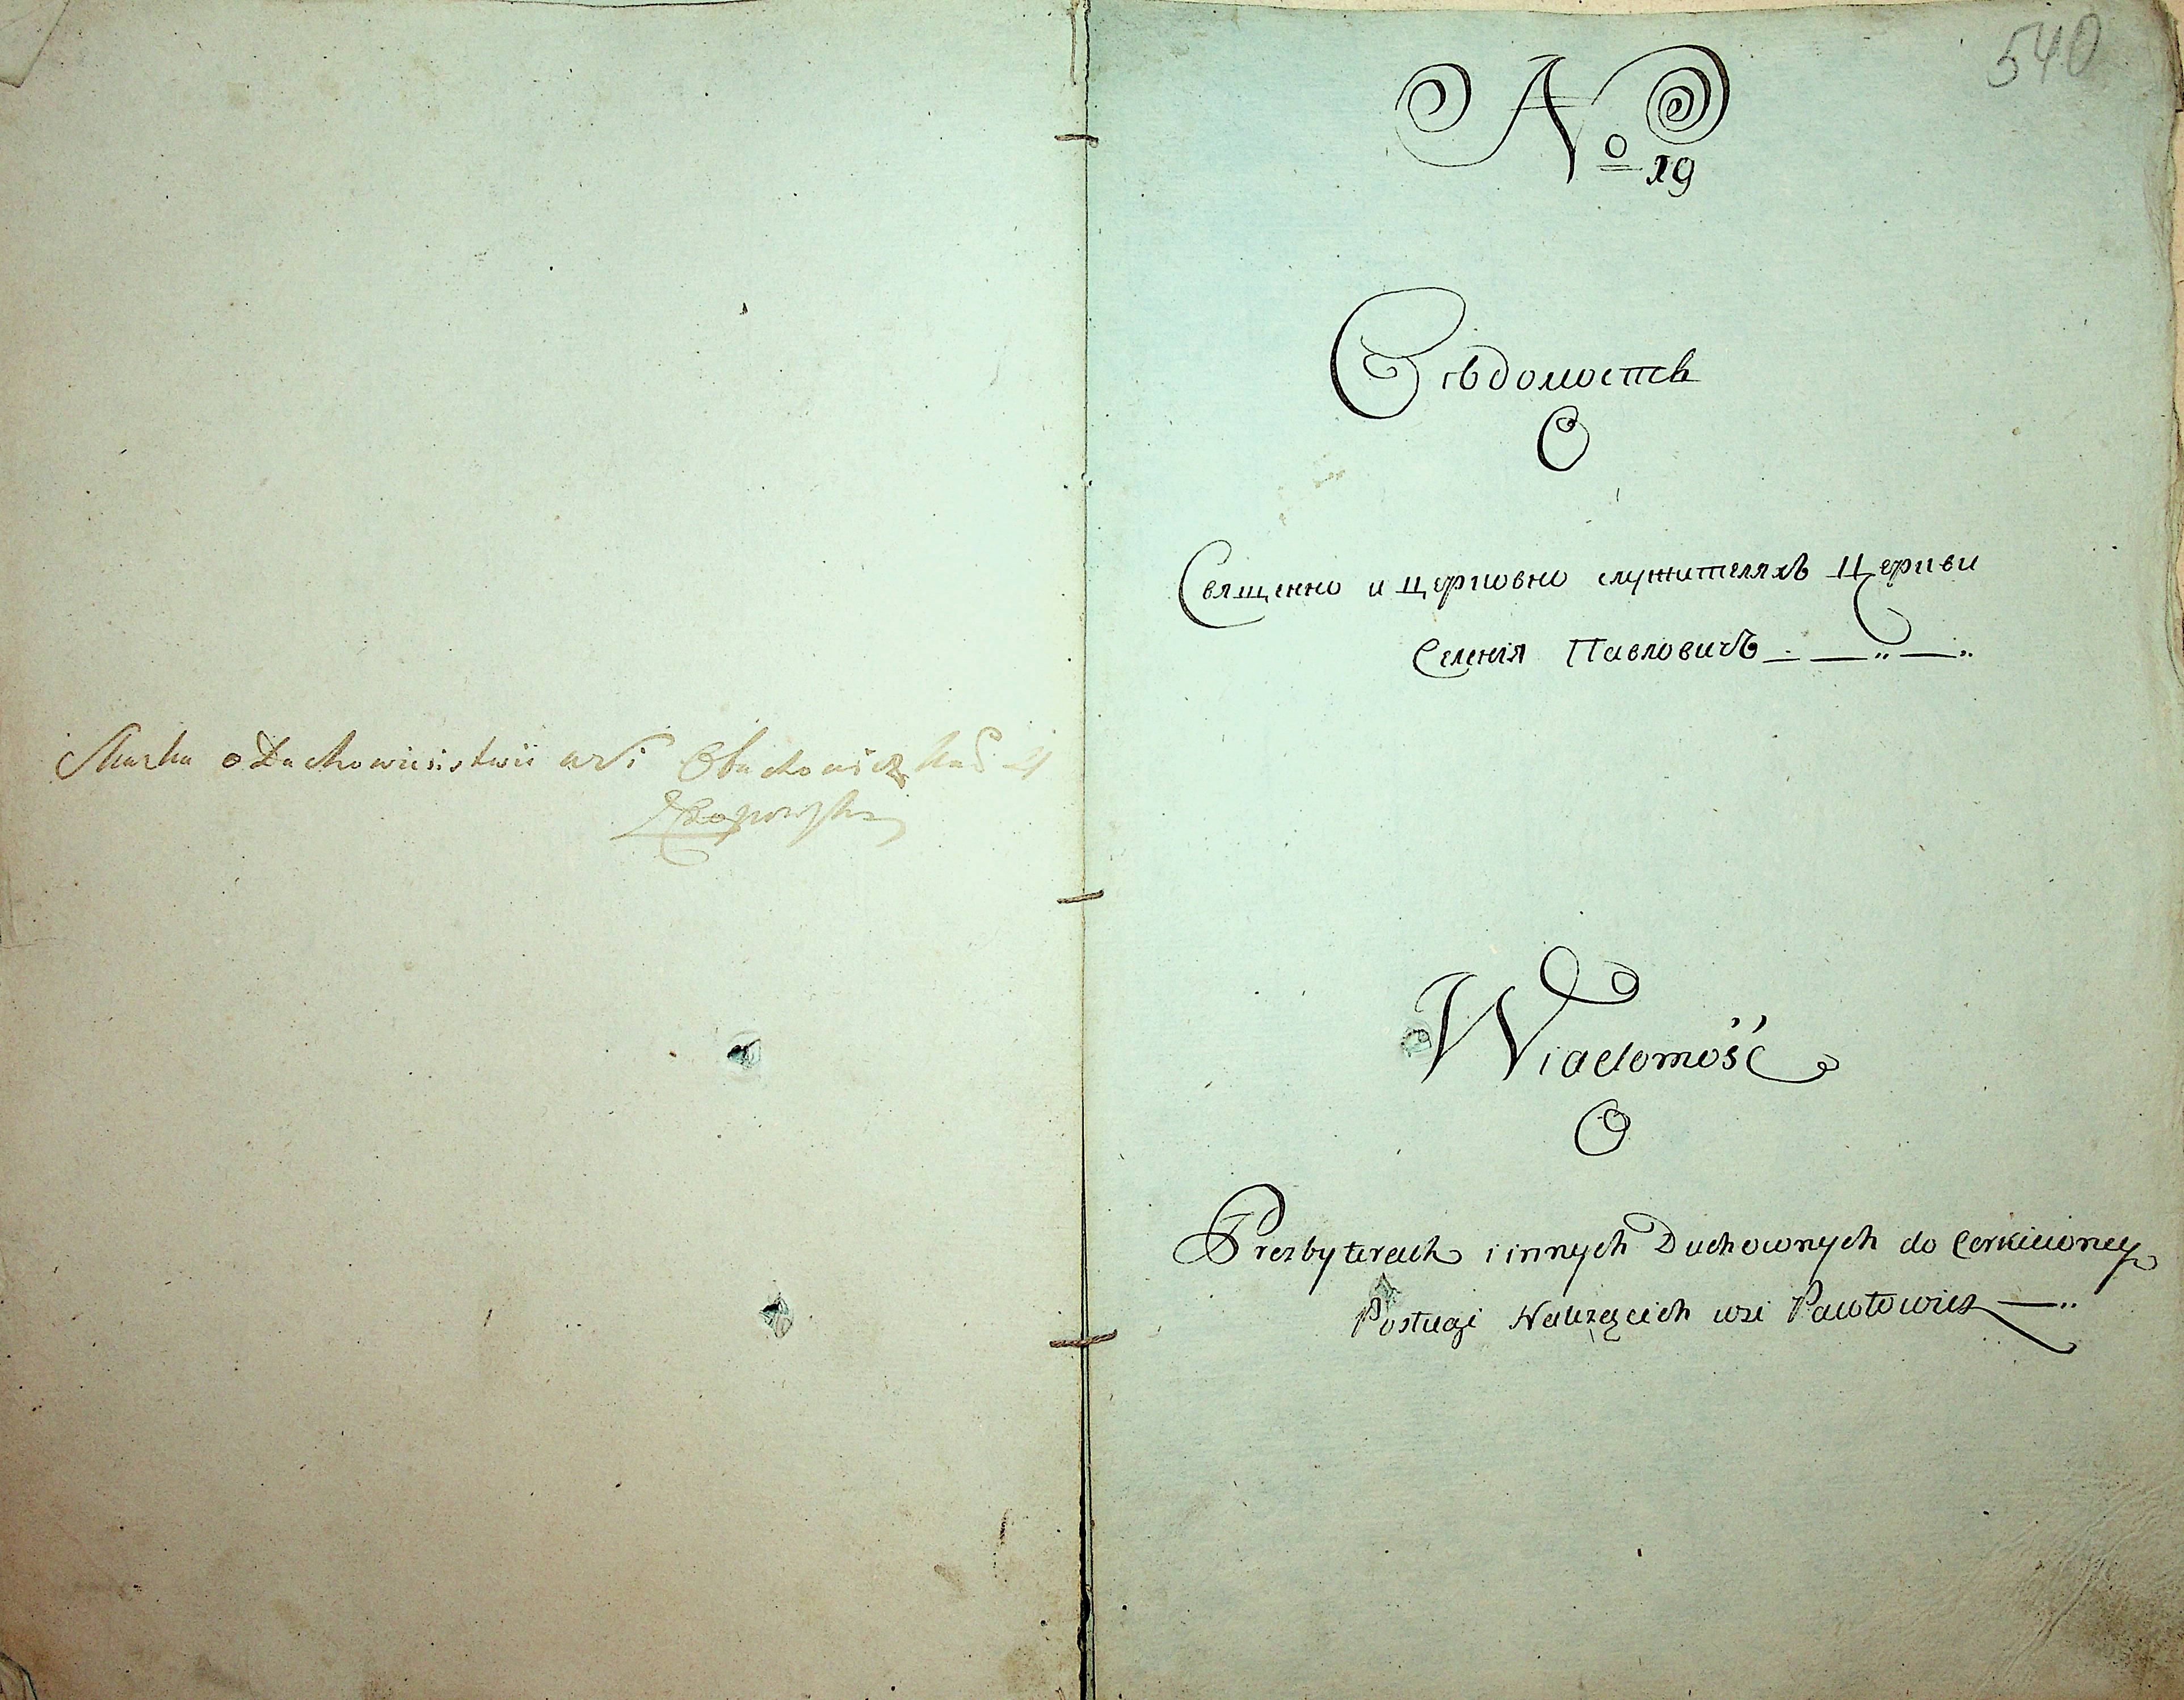 o Duchowieństwie wsi
540
№ 19
Вѣдомость
О
Священно и церковно служителяхъ Церкви
Селенія Павловичъ
Wiadomość
O
Prezbyterach i innych Duchownych do Cerkiewney
Posługi Należących wsi Pawłowicz